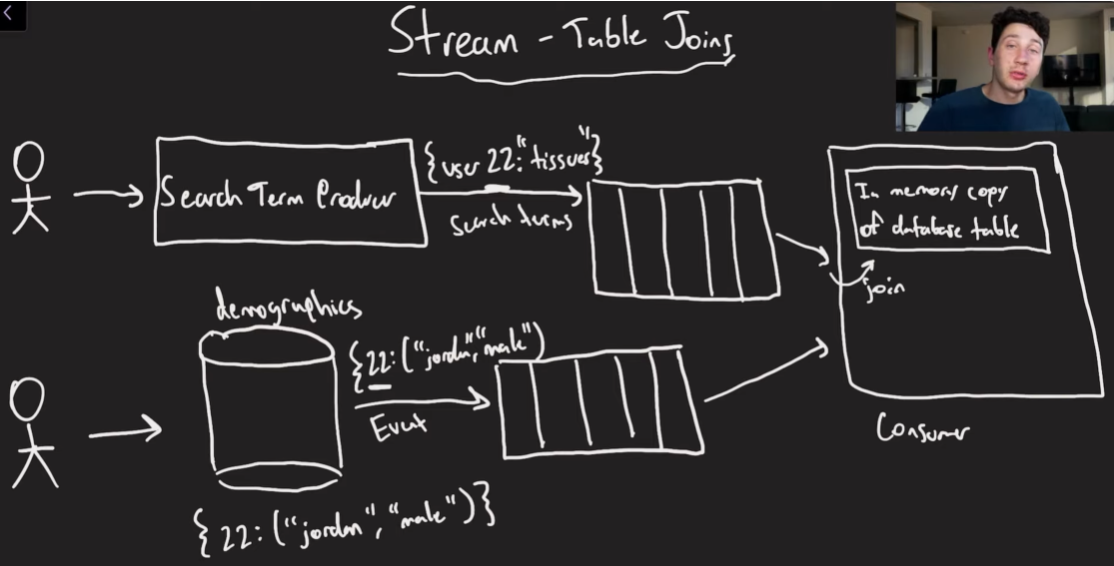 Stream - Table Joins
{user 22: "tissues"}
Search Term Producer
Search terms
In memory copy
of database table
join
demographics
{22: ("jordan", "male")
Event
Consumer
{22: ("jordan", "male")}